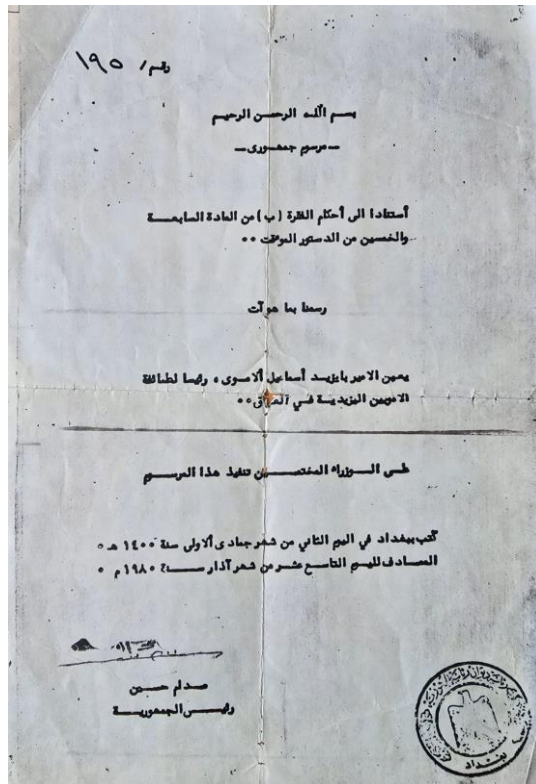 رقم / ١٩٥
بسم الله الرحمن الرحيم
ـ مرسوم جمهوري ـ
أستنادا الى أحكام الفقرة ( ب ) من المادة السابعـــــة
والخمسين من الدستور الموقت ٠٠
رسمنا بما هو آت
يعين الامير بايزيـــد أسماعيل ألاموى ٠ رئيسا لطائفة
الامويين اليزيديـــة فـــي العراق ٠٠
على الـــوزراء المختصـــين تنفيذ هذا المرســـوم
كتب ببغداد في اليوم الثاني من شهر جمادى ألاولى سنة ١٤٠٠ هـ ٠
المصـــادف لليوم التاسع عشـــر من شهر آذار ســـنة ١٩٨٠ م ٠
صـــدام حســـين
رئيـــس الجمهوريـــة
بغداد